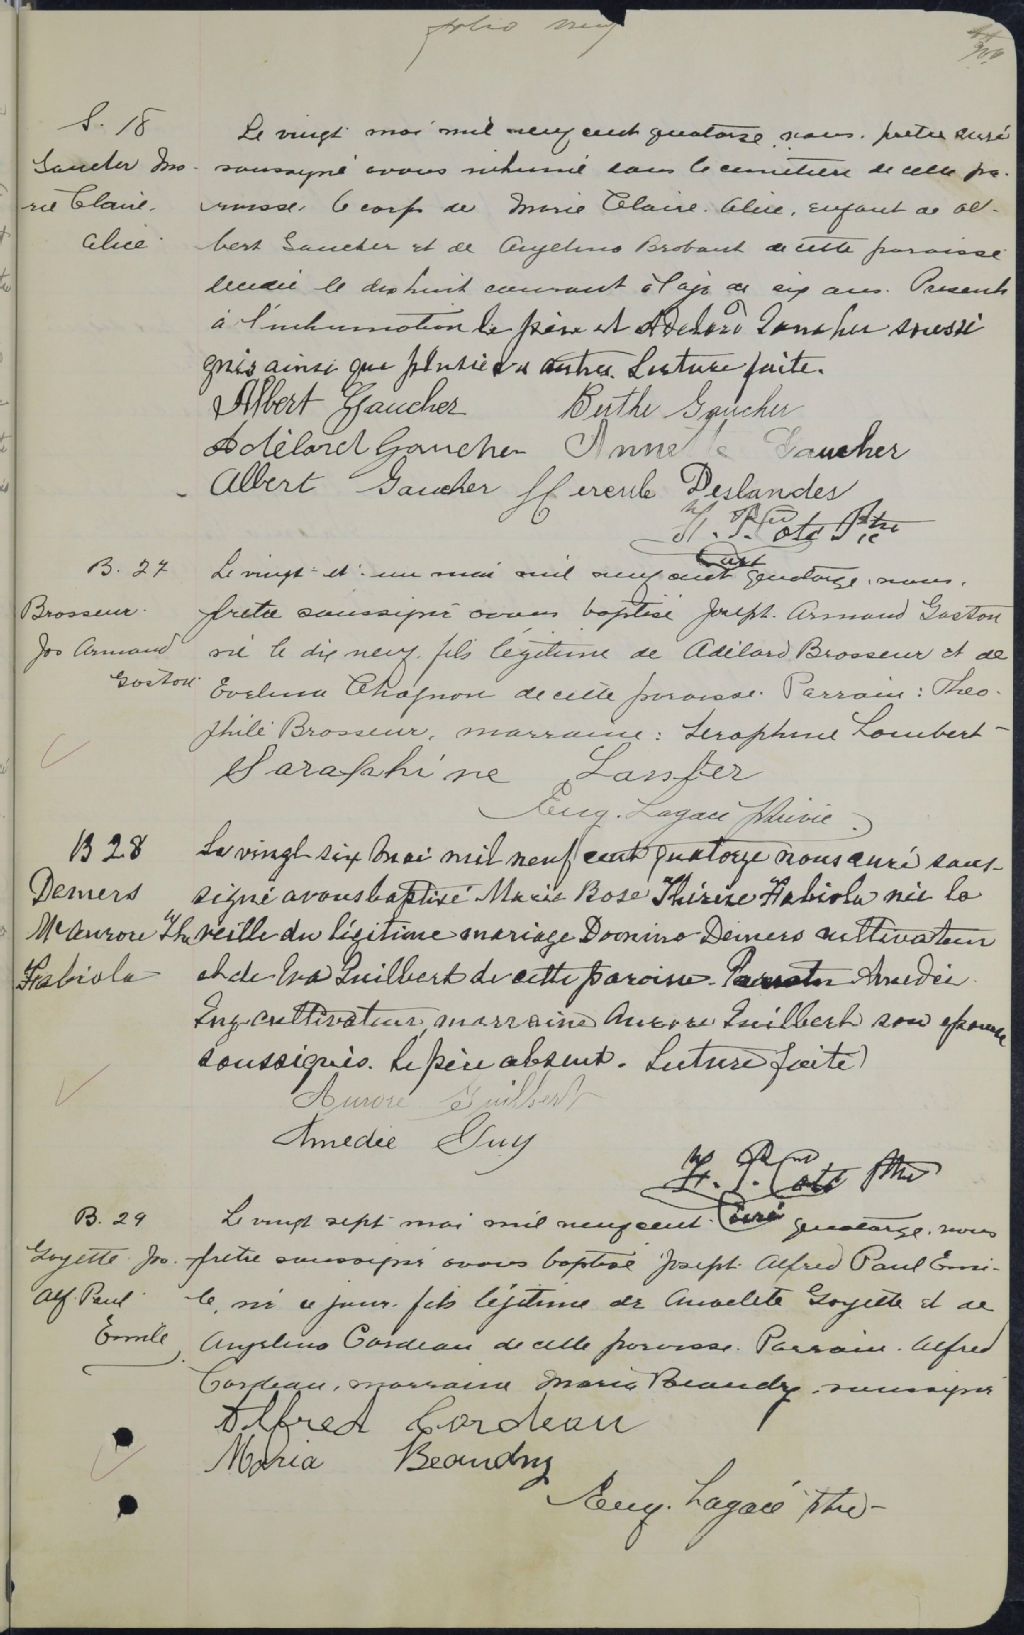 folio neuf
S. 18
Gaucher Ma-
rie Claire.
Alice
Le vingt mai mil neuf cent quatorze, nous, prêtre curé
soussigné avons inhumé dans le cimetière de cette pa-
roisse, le corps de Marie Claire Alice, enfant de Al-
bert Gaucher et de Angelina Brabant de cette paroisse
décédée le dix huit courant à l'age de six ans. Présents
à l'inhumation le père et Adelard Gaucher soussi
gnés ainsi que plusieurs autres. Lecture faite.
Albert Gaucher Berthe Gaucher
Adélard Gaucher Annette Gaucher
Albert Gaucher Hercule Deslandes
H. P. Coté Ptre
Curé
B. 27
Brosseur
Jos Armand
Gaston
Le vingt-et-un mai mil neuf cent quatorze, nous,
prêtre soussigné avons baptisé Joseph Armand Gaston
né le dix neuf, fils légitime de Adélard Brosseur et de
Evelina Chagnon de cette paroisse. Parrain: Théo-
phile Brosseur, marraine: Seraphine Lambert
Saraphine Lamber
Eug. Lagacé Ptre vic.
B 28
Demers
Me Aurore Thé
Fabiola
Le vingt six mai mil neuf cent quatorze nous curé sous-
signé avons baptisé Marie Rose Thérèse Fabiola née la
veille du légitime mariage Domino Demers cultivateur
et de Eva Guilbert de cette paroisse. Parrain Amédée
Guy cultivateur, marraine Aurore Guilbert son épouse
soussignés. Le père absent. Lecture faite
Aurore Guilbert
Amedée Guy
H. P. Coté Ptre
Curé
B. 29
Goyette Jos.
Alf. Paul
Emile
Le vingt sept mai mil neuf cent quatorze, nous
prêtre soussigné avons baptisé Joseph Alfred Paul Emi-
le, né ce jour, fils légitime de Anaclète Goyette et de
Angelina Cordeau de cette paroisse. Parrain. Alfred
Cordeau, marraine Maria Beaudry, soussignés
Alfred Cordeau
Maria Beaudry
Eug. Lagacé Ptre